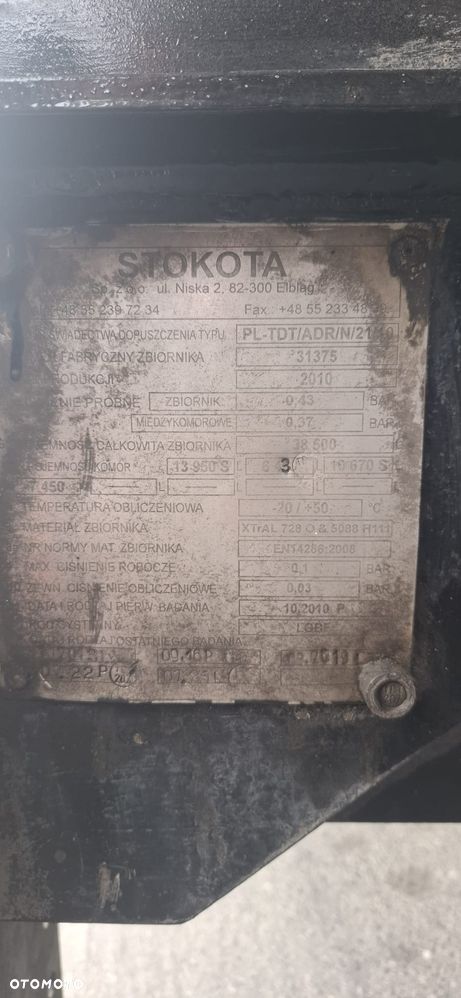 STOKOTA
Sp. z o.o. ul. Niska 2, 82-300 Elbląg
+48 55 239 72 34 Fax.: +48 55 233 48
ŚWIADECTWA DOPUSZCZENIA TYPU PL-TDT/ADR/N/21/10
FABRYCZNY ZBIORNIKA 31375
PRODUKCJI 2010
PRÓBNE ZBIORNIK 0,43 BAR
MIĘDZYKOMOROWE 0,37 BAR
CAŁKOWITA ZBIORNIKA 38 500
KOMÓR 13 950 S 10 670 S
7 450 L L L
TEMPERATURA OBLICZENIOWA -20 / +50 °C
MATERIAŁ ZBIORNIKA XTrAL 728 O & 5088 H111
NR NORMY MAT. ZBIORNIKA EN14286:2008
MAX. CIŚNIENIE ROBOCZE 0,1 BAR
ZEWN. CIŚNIENIE OBLICZENIOWE 0,03 BAR
DATA I RODZAJ PIERW. BADANIA 10.2010 P
KOD CYSTERNY LGBF
OSTATNIEGO BADANIA
09.16 P
22 P
OTOMOTO